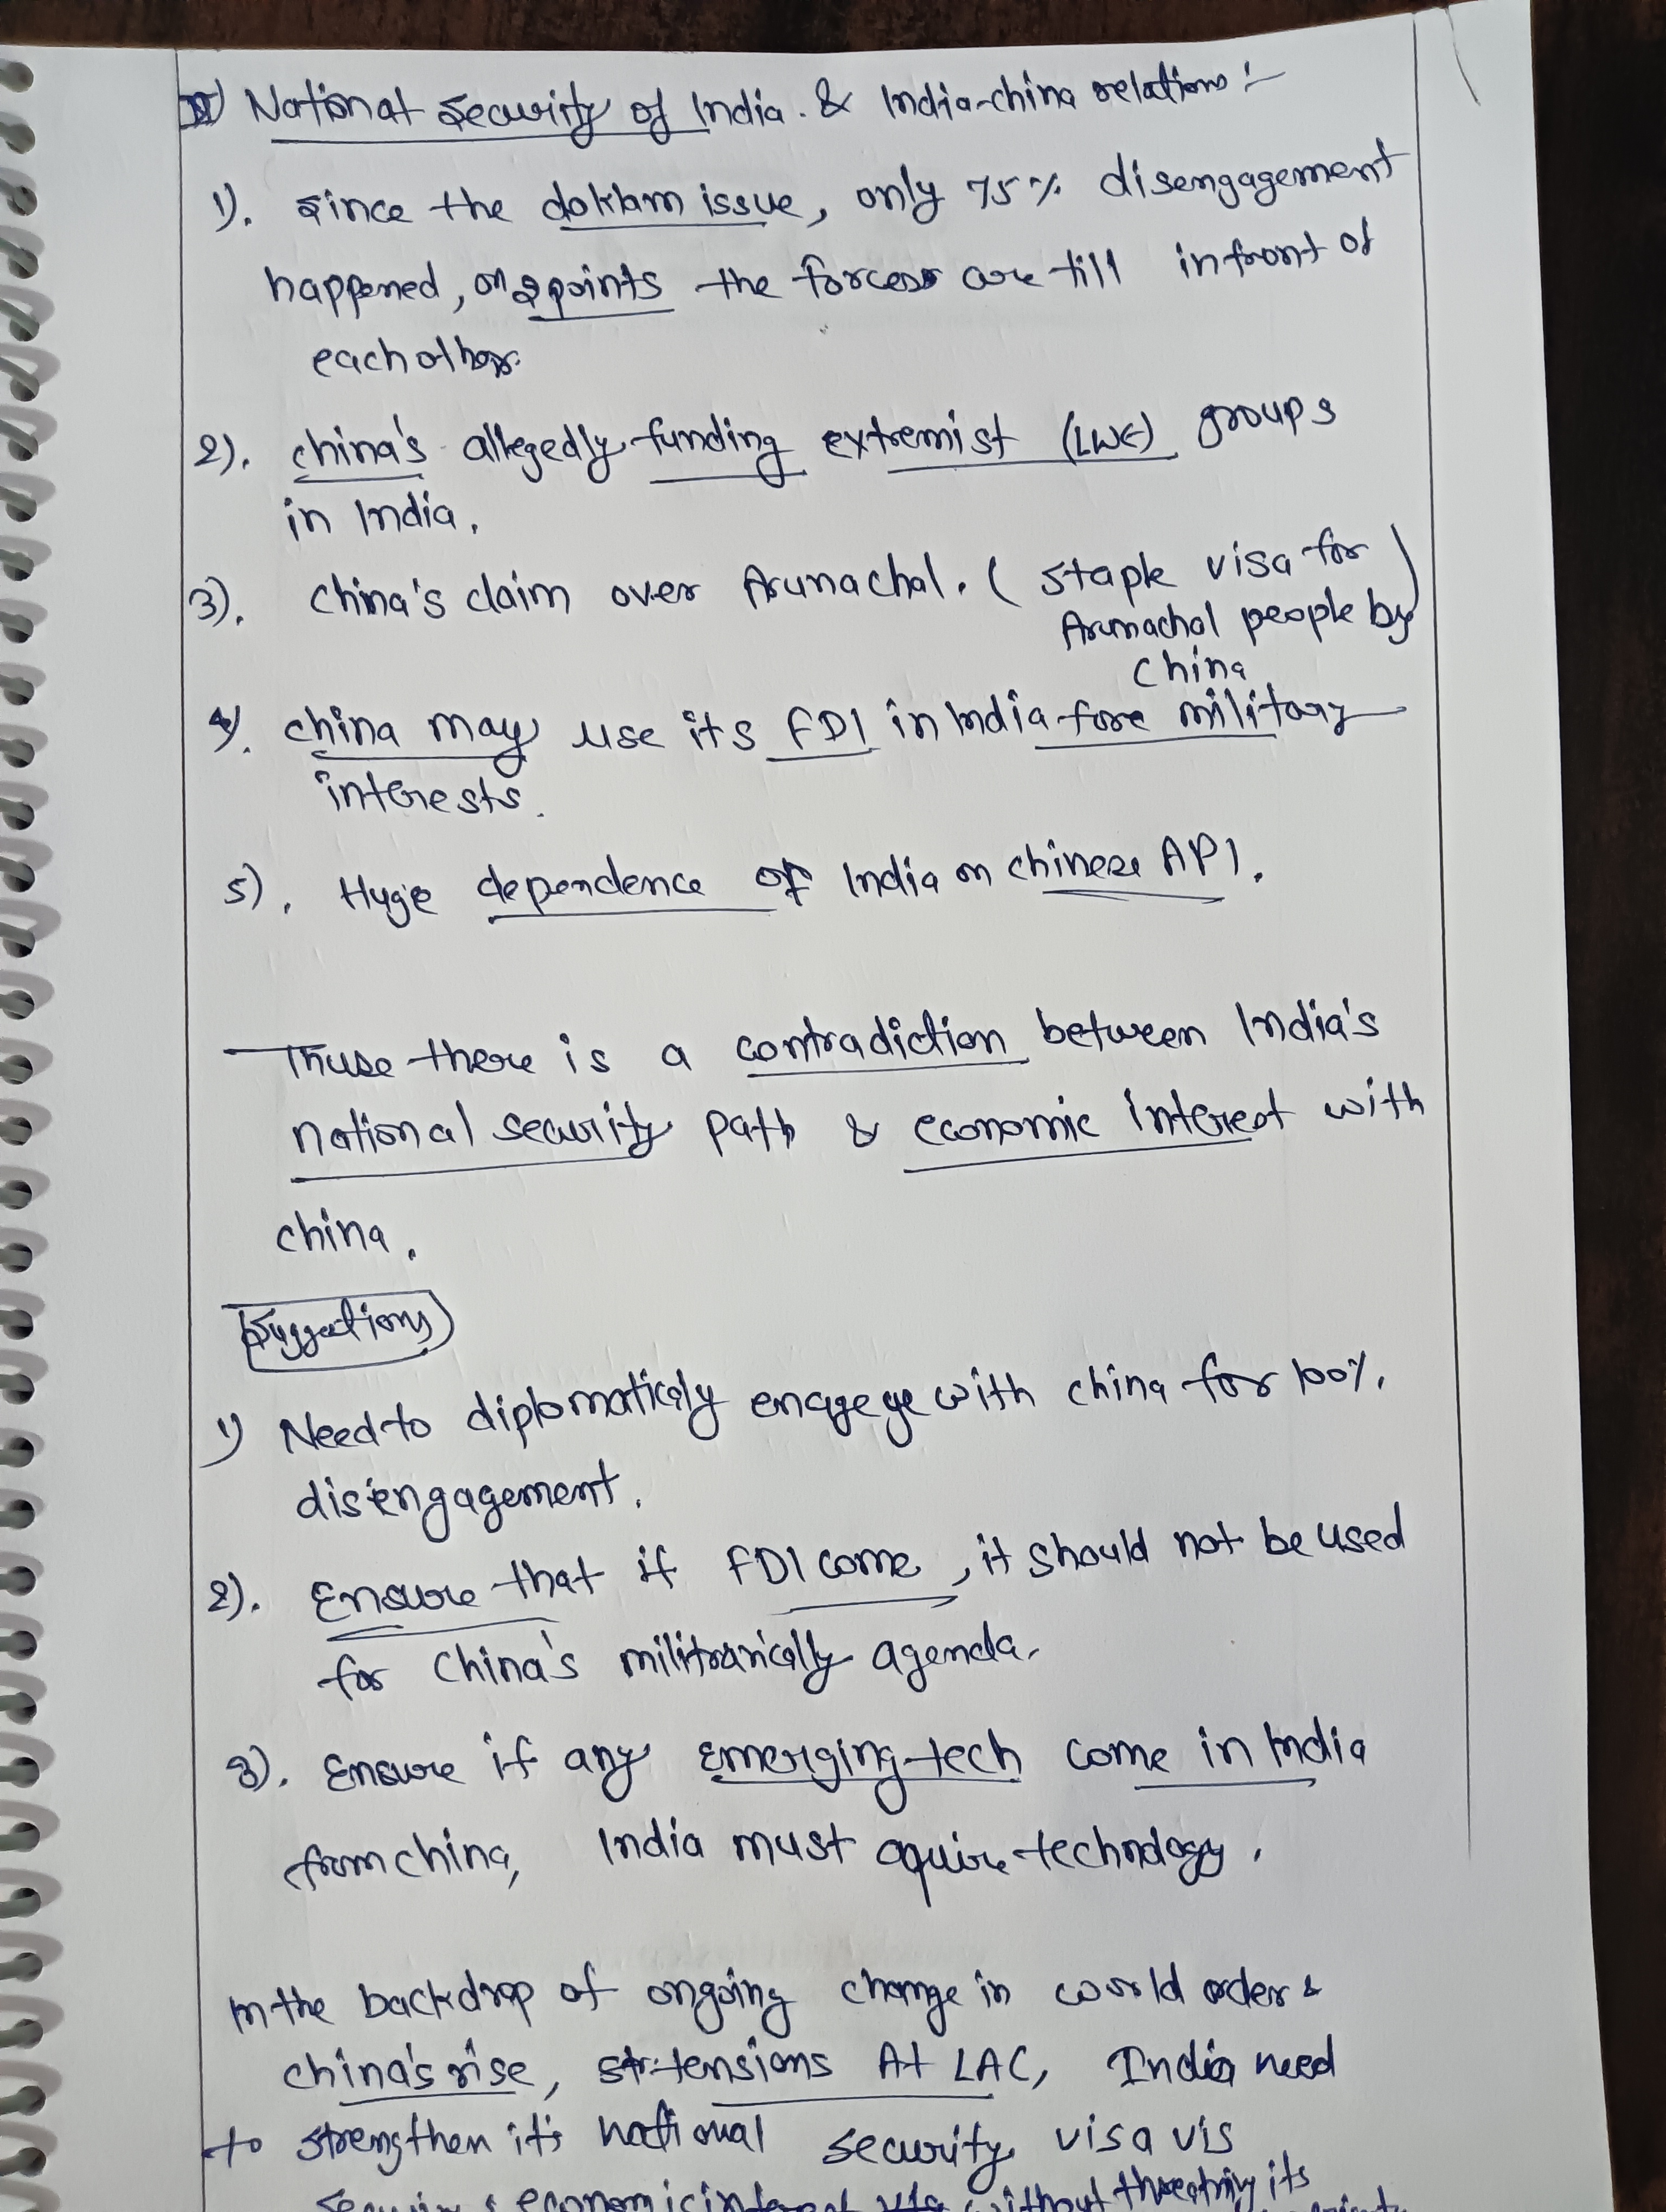 National security of India. & India-china relations :-
1). since the doklam issue, only 75% disengagement
happened, on 2 points the forces are till infront of
each other.
2). china's allegedly funding extremist (LWE) groups
in India.
3). China's claim over Arunachal. ( staple visa for
Arunachal people by
China )
4). china may use its FDI in India fore military
interests.
5). Huge dependence of India on chinese API.
Thuse there is a contradiction between India's
national security path & economic interest with
china.
Suggestions
1) Need to diplomaticaly engage with china for 100%.
disengagement.
2). Ensure that if FDI come, it should not be used
for China's agenda.
3). Ensure if any emerging tech come in India
from china, India must aquire technology.
In the backdrop of ongoing change in world order &
china's rise, tensions At LAC, India need
to strengthen it's national security visa vis
economic interest without its